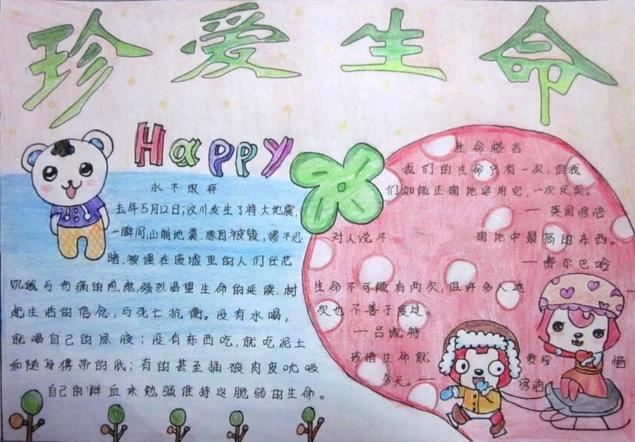 珍爱生命
Happy
永不放弃
去年5月12日,汶川发生了特大地震,
一瞬间,山崩地裂,家园被毁,惨不忍
睹,被埋在废墟里的人们任凭
饥饿与伤痛的煎熬,强烈渴望生命的延续,树
起生活的信念,与死亡抗衡。没有水喝,
就喝自己的尿液;没有东西吃,就吃泥土
和随身携带的纸;有的甚至抽破肉皮吮吸
自己的鲜血来勉强维持这脆弱的生命。
生命格言
我们的生命只有一次,但我
们如能正确地运用它,一次足矣。
— 英国谚语
对人说不 确地中最高的东西。
— 费尔巴哈
生命不可能有两次,但许多人连一
次也不善于度过。
— 吕凯特
珍惜生命就 要珍惜
今天。 谚语